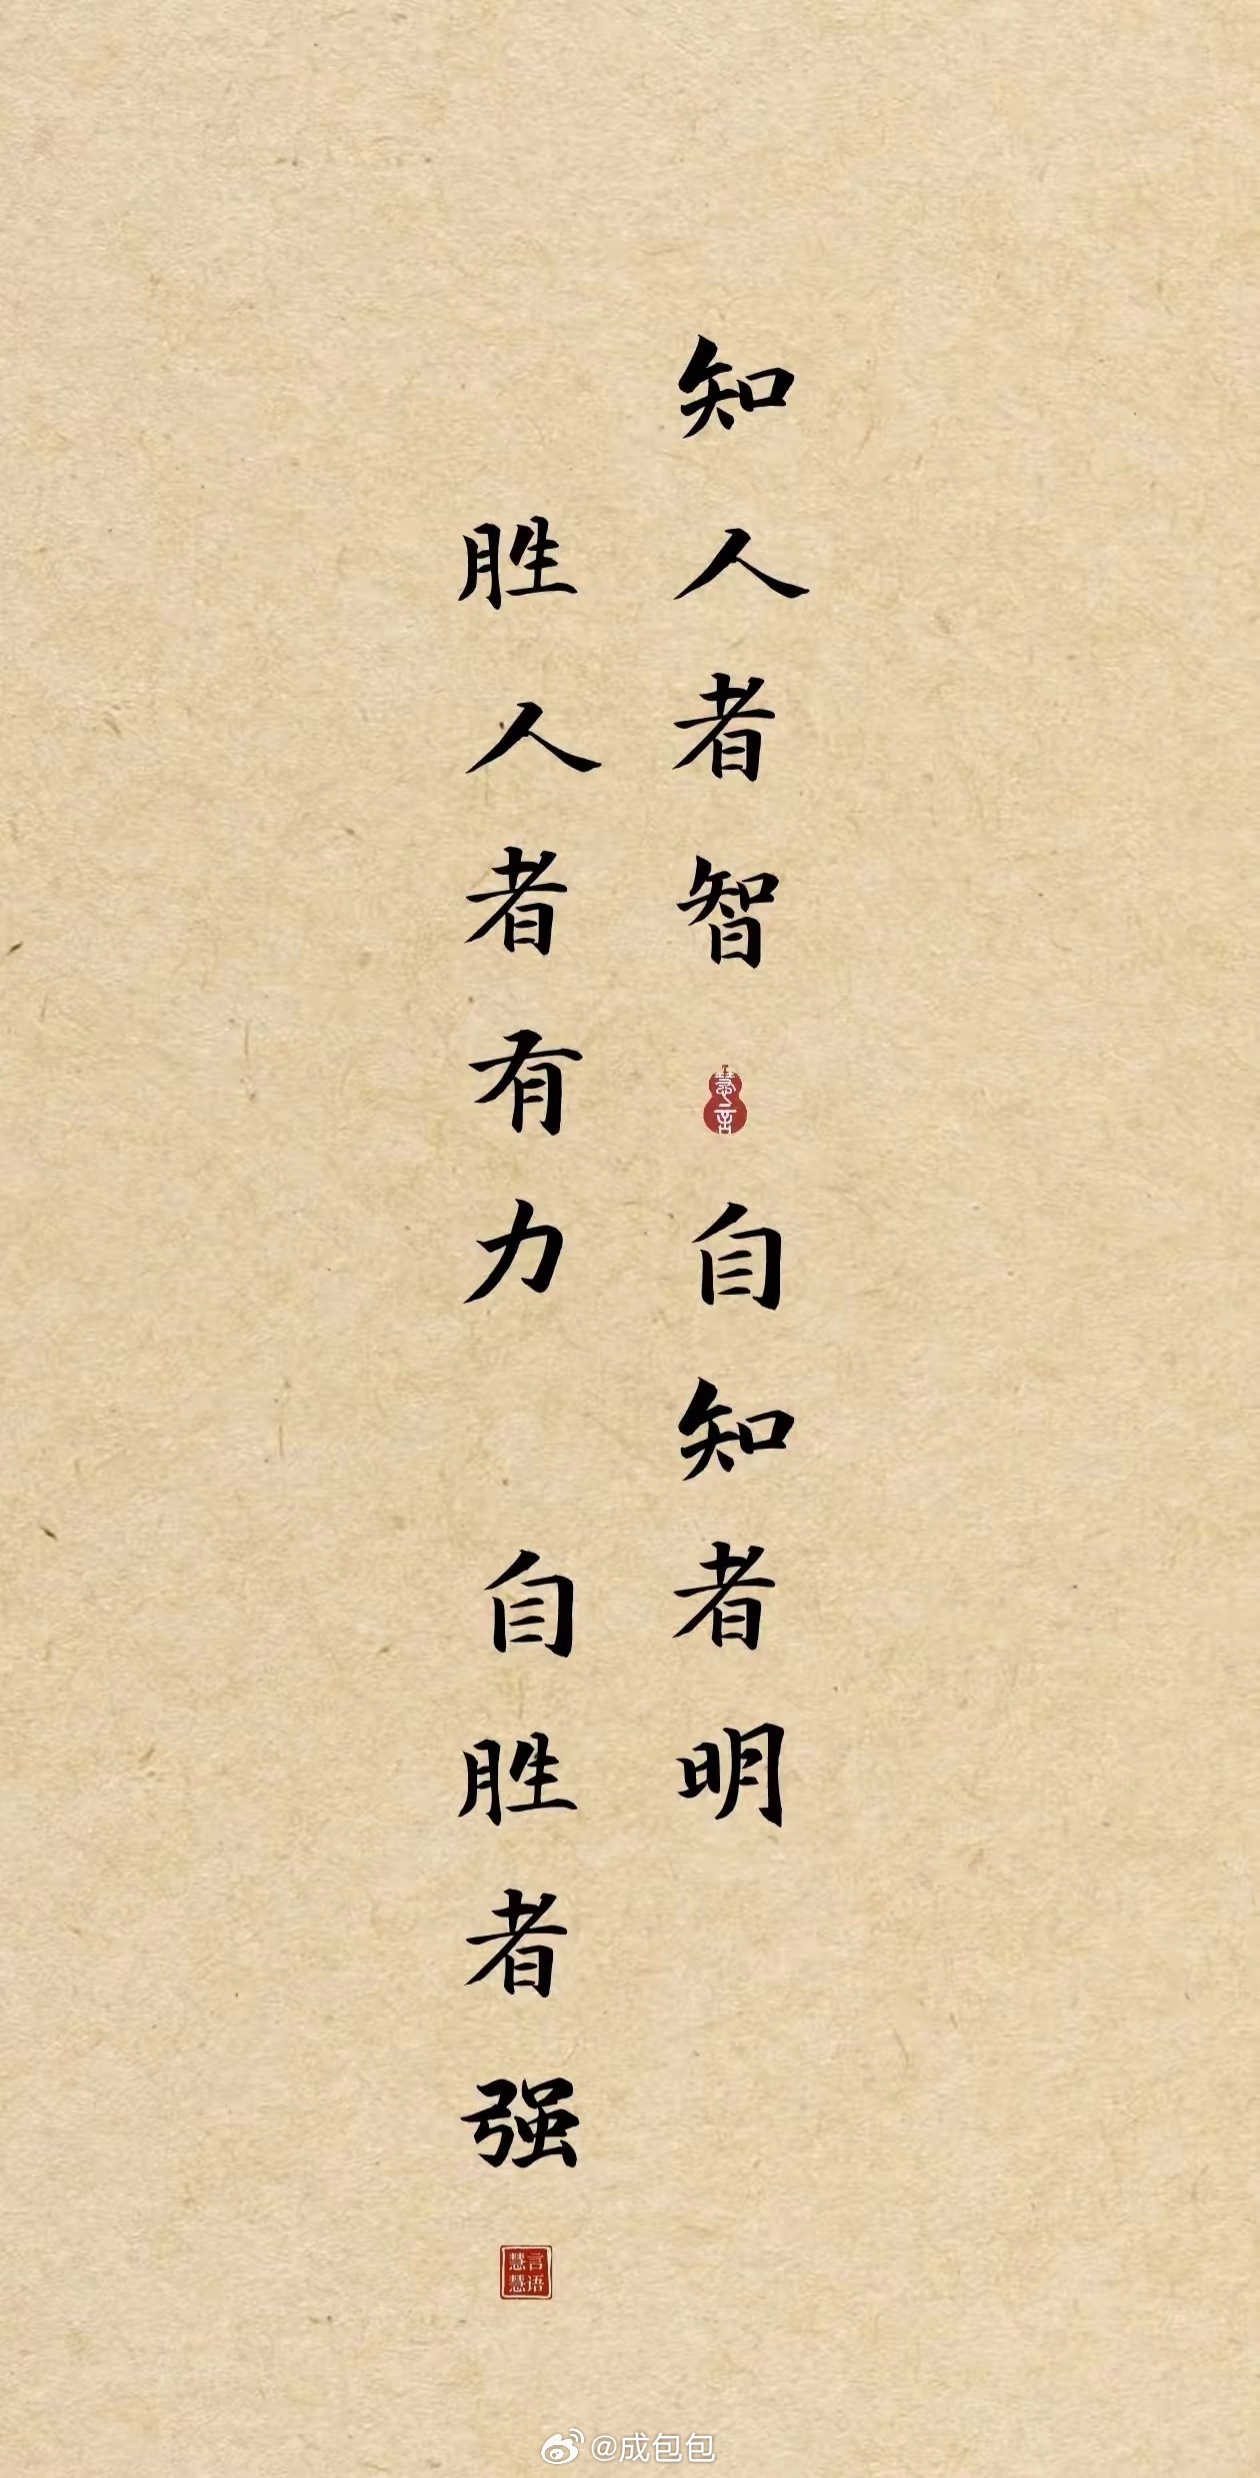 知人者智 自知者明
胜人者有力 自胜者强
慧言
言语慧慧
@成包包